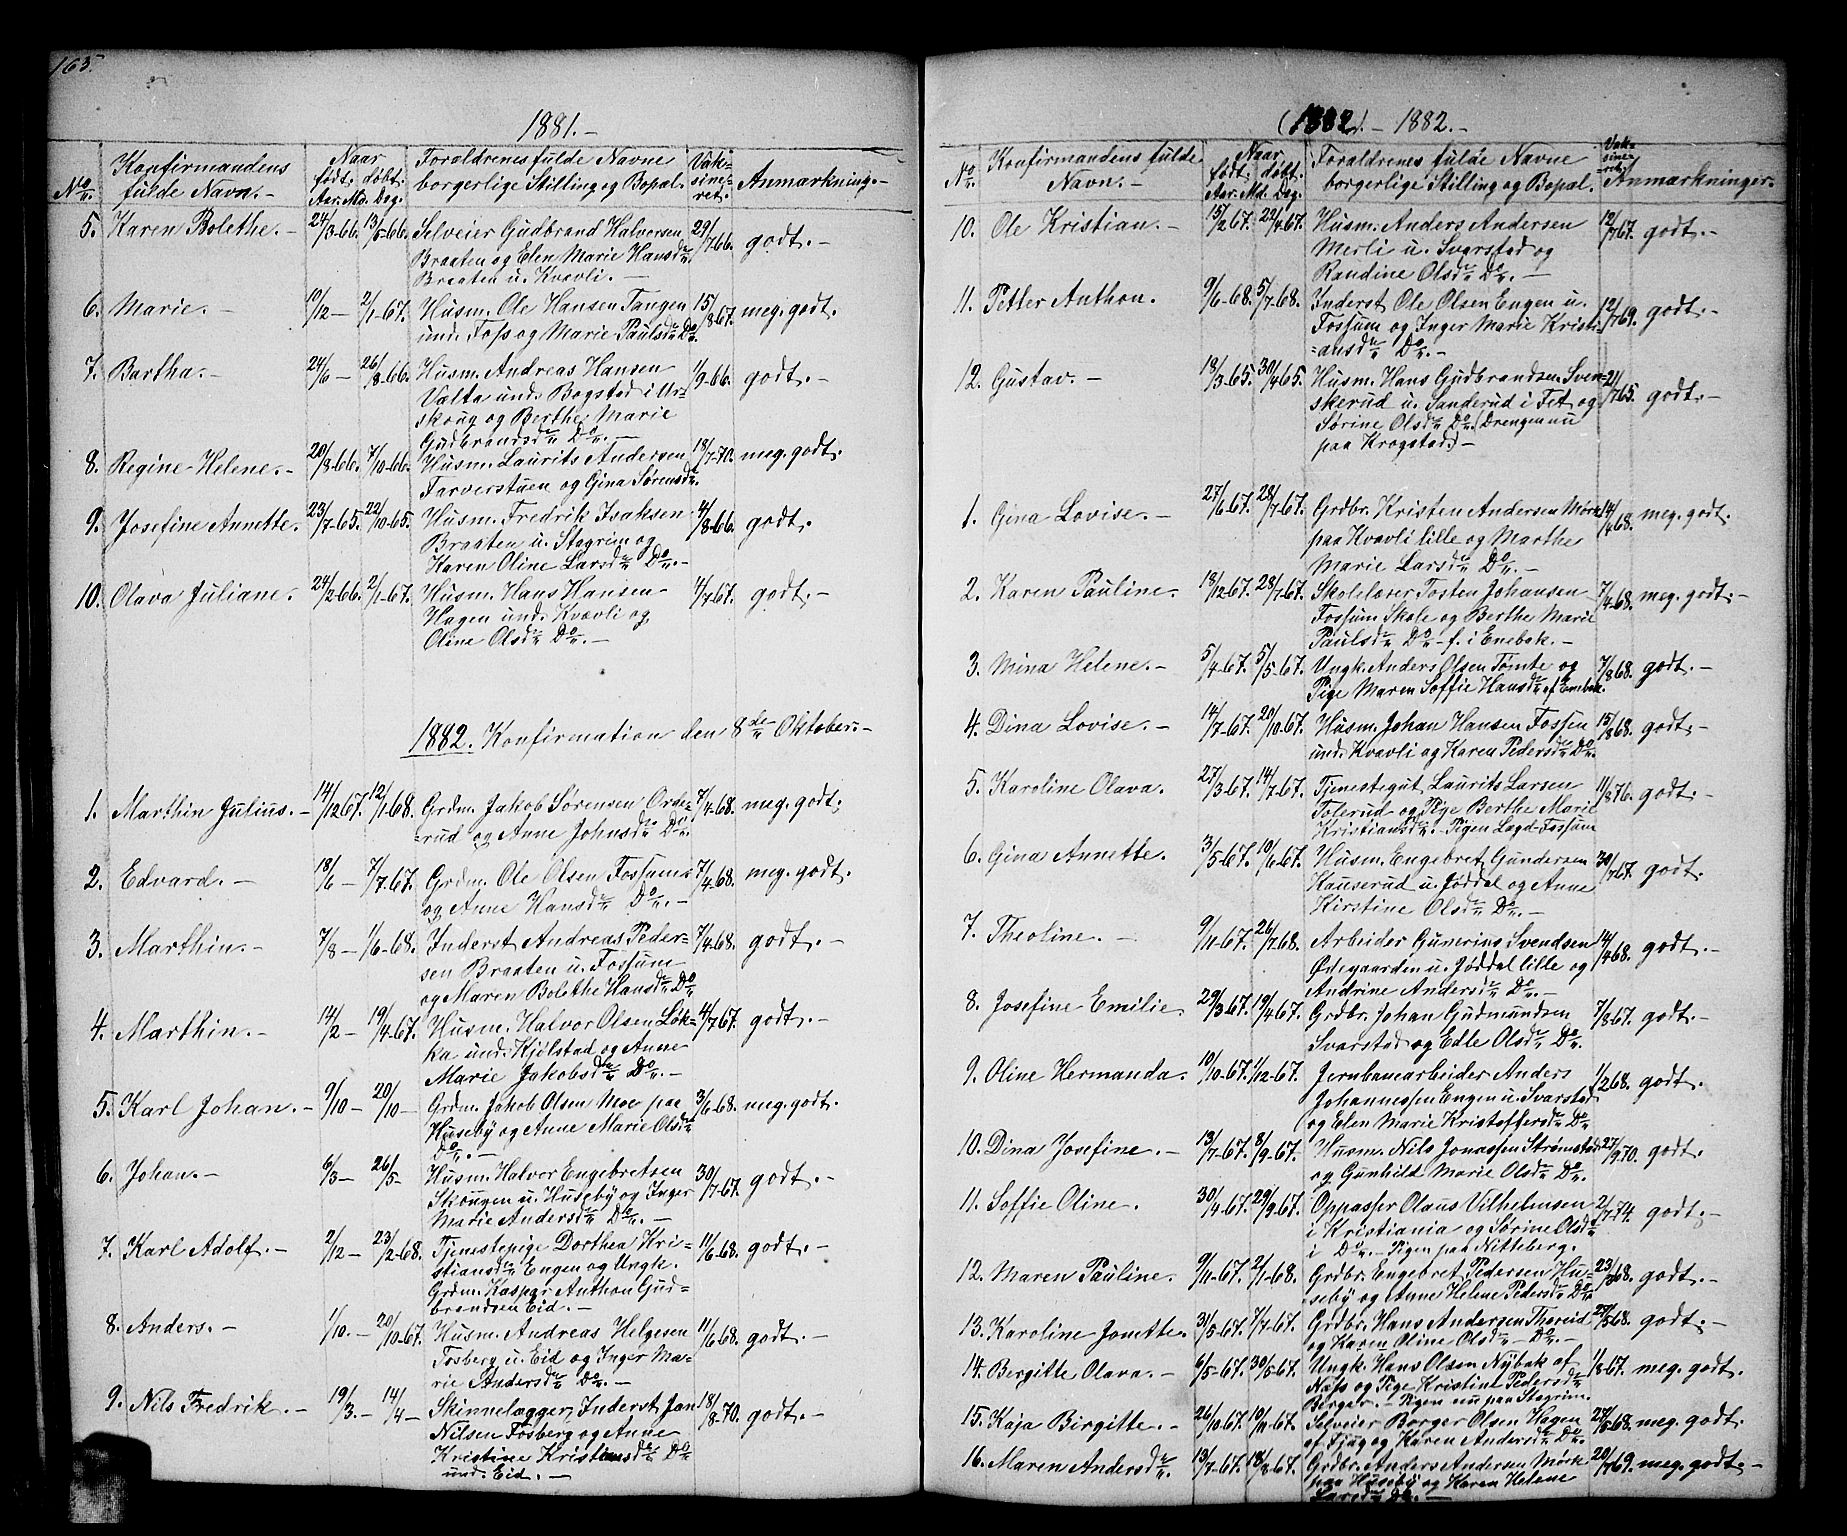 165.
1881.-
No. Konfirmandens fulde Navn.- Naar født. døbt. Aar. Md. Dag. Foraldrenes fulde Navne borgerlige Stilling og Bopal. Vaksineret. Anmarkning.-
5. Karen Bolethe.- 24/3-66. 13/5-66. Selveier Gudbrand Halvorsen 29/7-66. godt.-
Braaten og Elen Marie Hansdr
Braaten u. Kvavli.-
6. Marie.- 10/12- 2/1-67. Husm. Ole Hansen Tangen 15/8-67. meg. godt.
und. Foss og Marie Paulsdr Do.
7. Bartha.- 24/6- 26/8-66. Husm. Andreas Hansen 1/9-66. godt.-
Valta und. Bogstad i Ur-
skoug og Berthe Marie
Gudbrandsdr Do.-
8. Regine Helene.- 20/8-66. 7/10-66. Husm. Laurits Andersen 18/7-70. meg. godt.
Farverstuen og Gina Sørensdr
9. Josefine Annette. 23/7-65. 22/10-65. Husm. Fredrik Isaksen 4/8-66. godt.
Braaten u. Stagrim og
Karen Oline Larsdr Do.-
10. Olava Juliane. 24/2-66. 2/1-67. Husm. Hans Hansen 4/7-67. godt.-
Hagen und. Kvavli og
Oline Olsdr Do.-
1882. Konfirmation den 8de Oktober.-
1. Marthin Julius.- 14/12 67. 12/1-68. Grdm. Jakob Sørensen Orde- 7/4-68. meg. godt.
=rud og Anne Johnsdr Do.
2. Edvard.- 18/6- 7/7-67. Grdm. Ole Olsen Fossum 7/4-68. meg. godt.
og Anne Hansdr Do.-
3. Marthin.- 7/8- 1/6-68. Inderst Andreas Peder- 7/4-68. godt.-
sen Braaten u. Fossum
og Maren Bolethe Hansdr Do
4. Marthin.- 14/2- 19/4-67. Husm. Halvor Olsen Løk- 4/7-67. godt.-
ka und. Kjølstad og Anne
Marie Jakobsdr Do.-
5. Karl Johan.- 9/10- 20/10- Grdm. Jakob Olsen Moe paa 3/6-68. meg. godt.
Huseby og Anne Marie Olsdr
Do.-
6. Johan.- 6/3- 26/5- Husm. Halvor Engebretsen 30/7-67. godt.-
Skougen u. Huseby og Inger
Marie Andersdr Do.-
7. Karl Adolf.- 2/12- 23/2-68. Tjenestepige Dorthea Kri- 11/6-68. godt.-
stiansdr Engen og Ungk.
Grdm. Kasper Anthon Gud-
brandsen Eid.-
8. Anders.- 1/10.- 20/10-67. Husm. Andreas Helgesen 11/6-68. godt.-
Fosberg u. Eid og Inger Ma-
rie Andersdr Do.-
9. Nils Fredrik.- 19/3.- 14/4- Skinnelægger, Inderst Jan 18/8-70. godt.-
Nilsen Fosberg og Anne
Kristine Kristiansdr Do
und. Eid.-
(1882).- 1882.-
No Konfirmandens fulde Navn.- Naar født. døbt. Aar. Md. Dag. Foraldrenes fulde Navne borgerlige Stilling og Bopal. Vaksineret. Anmarkninger.
10. Ole Kristian.- 15/2 67. 22/4-67. Husm. Anders Andersen 12/7 67. godt.-
Merli u. Svarstad og
Randine Olsdr Do.-
11. Petter Anthon. 9/6-68. 5/7-68. Inderst Ole Olsen Engen u. 12/7 69. godt.-
Fossum og Inger Marie Kristi-
=ansdr Do.-
12. Gustav.- 18/3-65. 30/4-65. Husm. Hans Gudbrandsen Sven= 21/7 65. godt.-
skerud u. Sanderud i Fet og
Sørine Olsdr Do. (Drengen nu
paa Krogstad)-
1. Gina Lovise.- 27/6-67. 28/7-67. Grdbr. Kristen Andersen Mørk 14/4 68. meg. godt.
paa Kvavli lille og Marthe
Marie Larsdr Do.-
2. Karen Pauline. 18/12-67. 28/7-67. Skolelærer Tosten Johansen 7/4-68. meg. godt.-
Fossum Skole og Berthe Marie
Paulsdr Do - f. i Enebak.-
3. Mina Helene.- 5/4-67. 5/5-67. Ungk. Anders Olsen Tomte og 7/8 68. godt.-
Pige Maren Soffie Hansdr af Enebak.
4. Dina Lovise.- 14/7-67. 20/10-67. Husm. Johan Hansen Fossen 15/8 68. godt.-
und. Kvavli og Karen Pedersdr Do.
5. Karoline Olava. 27/3-67. 14/7-67. Tjenestegut Laurits Larsen 11/8 76. godt.-
Tolerud og Pige Berthe Marie
Kristiansdr.- Pigen Lagd Fossum
6. Gina Annette. 3/5-67. 10/6-67. Husm. Engebret Gundersen 30/7 67. godt.
Hauserud u. Jøddal og Anne
Kirstine Olsdr Do.-
7. Theoline.- 9/11-67. 26/7 68. Arbeider Gumerius Svendsen 14/4 68. godt.-
Ødegaarden u. Jøddal lille og
Andrine Andersdr Do.-
8. Josefine Emilie 29/3-67. 19/4-67. Grdbr. Johan Gudmundsen 7/8-67. godt.-
Svarstad og Edle Olsdr Do.
9. Oline Hermanda. 10/10-67. 1/12-67. Jernbanearbeider Anders 1/2 68. godt.-
Johannessen Engen u. Svarstad
og Elen Marie Kristoffersdr Do
10. Dina Josefine.- 13/7-67. 8/9-67. Husm. Nils Jonassen Strømstad 27/9 70. godt.
og Gunhild Marie Olsdr Do.
11. Soffie Oline. 30/4-67. 29/9-67. Oppasser Olaus Vilhelmsen 2/7 74. godt.-
i Kristiania og Sørine Olsdr
i Do.- Pigen paa Nitteberg.
12. Maren Pauline. 9/11-67. 2/1-68. Grdbr. Engebret Pedersen Hu- 23/ 68. godt.-
seby og Anne Helene Pedersdr Do
13. Karoline Jonette. 31/5-67. 7/7-67. Grdbr. Hans Andersen Thorud 27/5 68. godt.-
og Karen Oline Olsdr- Do.-
14. Bergitte Olava.- 6/5-67. 30/5-67. Ungk. Hans Olsen Nybak af 1/8-67. meg. godt.
Nass og Pige Kristine Pedersdr
Berger.- Pigen nu paa Stagrim.
15. Kaja Birgitte.- 26/10-67. 10/11-67. Selveier Borger Olsen Hagen 27/5 68. meg. godt.
af Tjug og Karen Andersdr Do.
16. Maren Andersdr. 13/7-67. 18/8-67. Grdbr. Anders Andersen Mørk 20/7 69. meg. godt.-
paa Huseby og Karen Helene
Larsdr Do.-